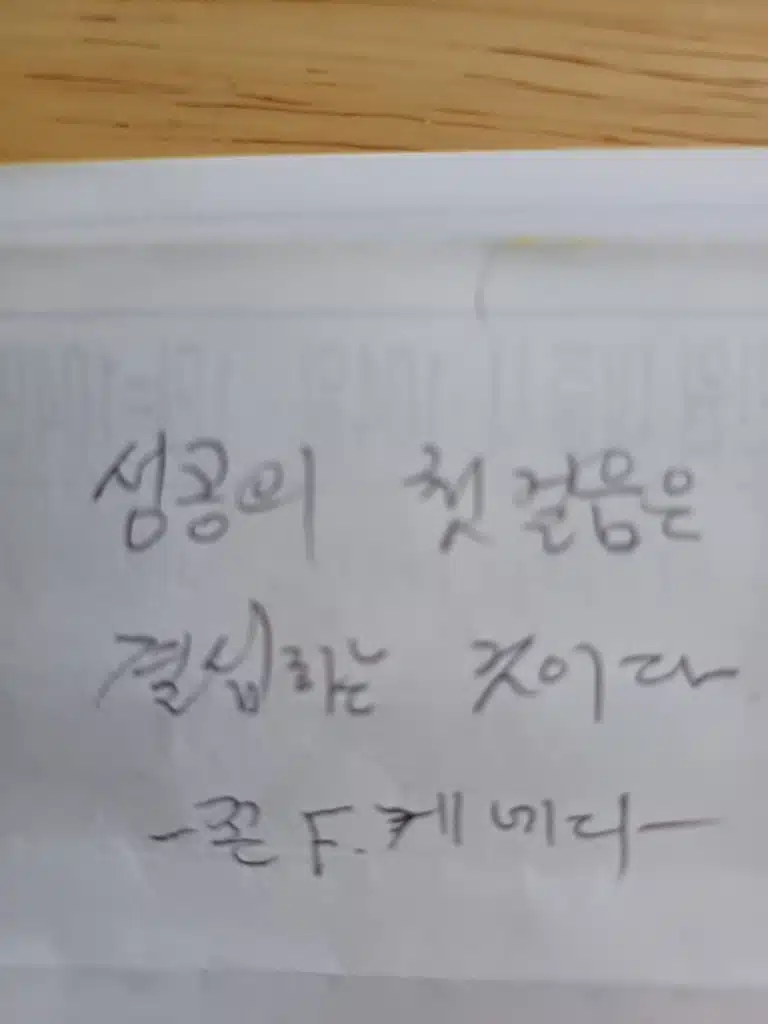 성공의 첫걸음은
결심하는 것이다
-존 F. 케네디-